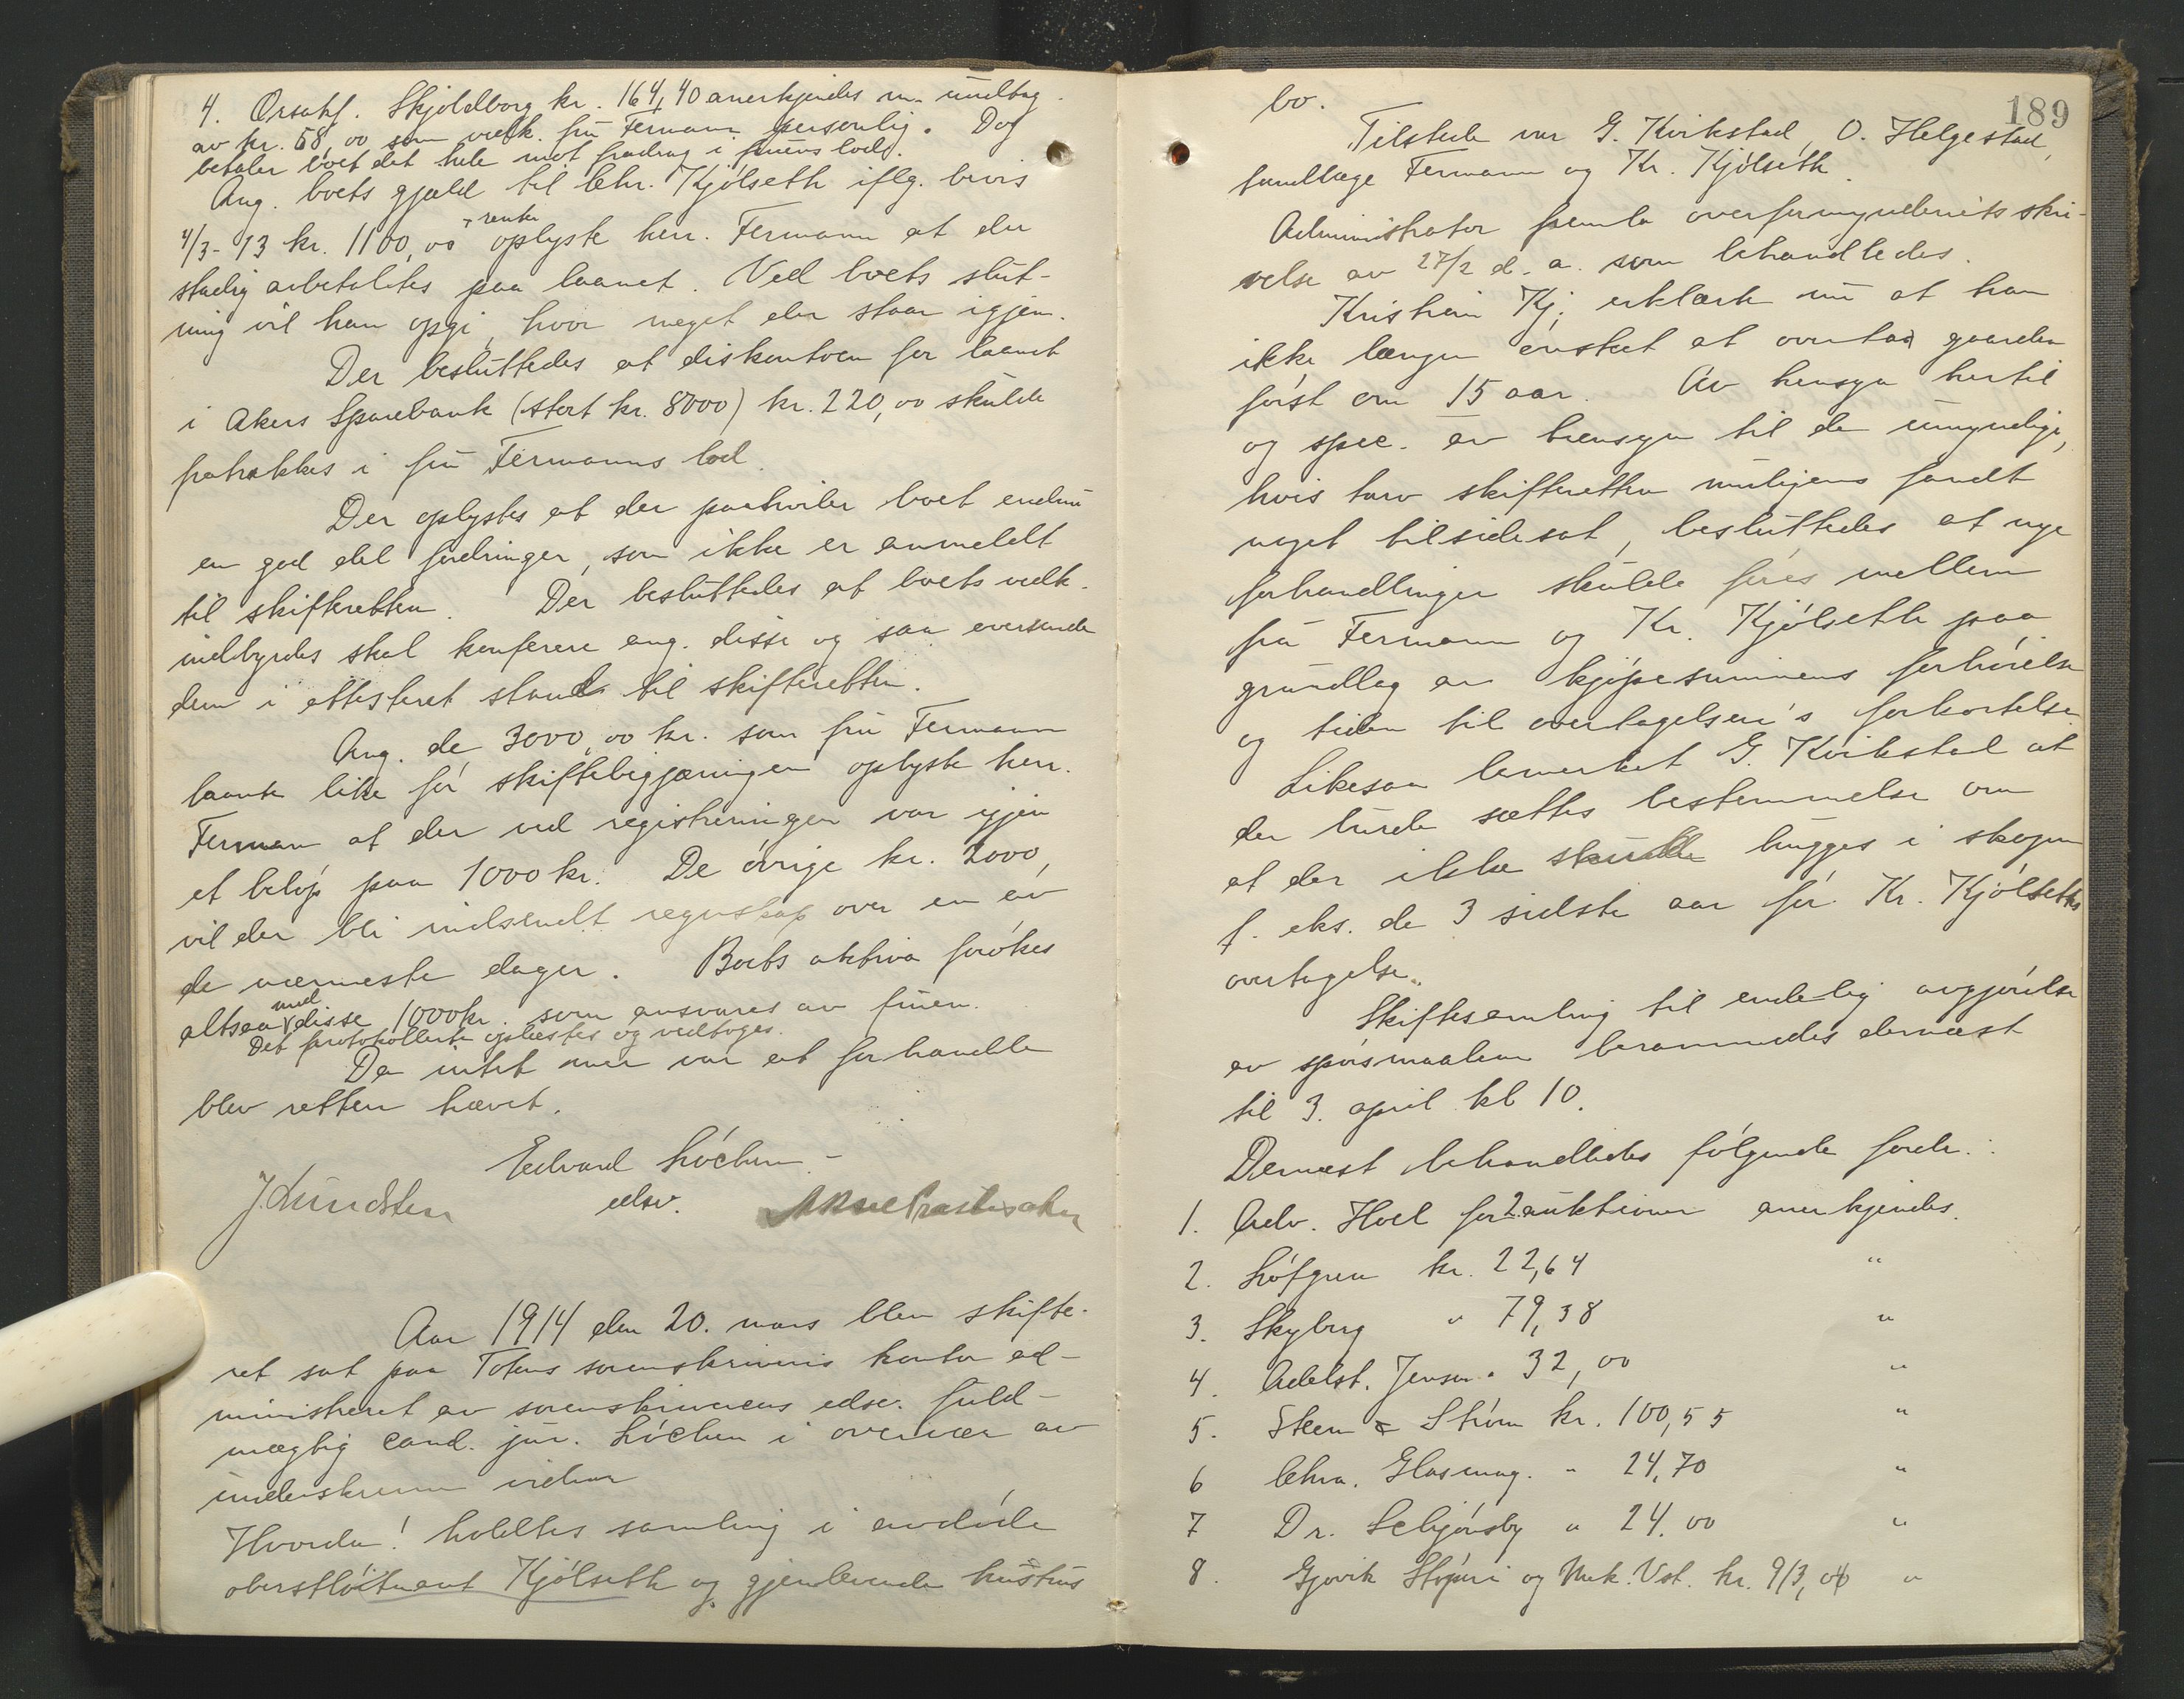 4. Orsakf. Skjoldborg kr. 164,40 anerkjendes m. undtag
av kr. 58,00 som vedk. frú Fermann personlig. Dog
betaler boet det hele mot fradrag i fruens lodd.
Ang. boets gjæld til lehr. Kjölseth iflg. bevis
4/3-13 kr. 1100,00 + renter oplyste herr. Fermann at der
stadig avbetaltes paa laanet. Ved boets slut-
ning vil han opgi, hvor meget der staar igjen.
Der besluttedes at diskontoen for laanet
i Akers Sparebank (stort kr. 8000) kr. 220,00 skulde
fratrækkes i frú Fermanns lod.
Der oplystes at der paahviler boet endnu
en god del fordringer, som ikke er anmeldt
til skifteretten. Der besluttedes at boets vedk.
indbyrdes skal konferere ang. disse og saa oversende
dem i attesteret stand til skifteretten.
Ang. de 3000,00 kr. som frú Fermann
laante like før skiftebegjæringen oplyste herr.
Fermann at der ved registreringen var igjen
et beløp paa 1000 kr. De øvrige kr. 2000,
vil der bli indsendt regnskap over en av
de nærmeste dager. Boets aktiva forøkes
altsaa med disse 1000 kr. som ansvares av fruen.
Det protokollerte oplæstes og vedtoges.
Da intet mer var at forhandle
blev retten hævet.
Edvard Løchen
J. Lundsten edsv.
Aar 1914 den 20. mars blev skifte-
ret sat paa Totens sorenskriveris kontor ad-
ministreret av sorenskriverens edsv. fuld-
mægtig cand. jur. Løchen i overvær av
underskrevne vidner
Hvorda! holdtes samling i avdøde
oberstløitnant Kjölseth og gjenlevende hustrus
189
bo.
Tilstede var G. Kvikstad, O. Helgestad,
landbrugs Fermann og Kr. Kjölseth.
Administrator fremla overformynderiets skri-
velse av 27/2 d. a. som behandledes.
Kristian Kj. erklærte nu at han
ikke længer ønsket at overta gaarden
først om 15 aar. Av hensyn hertil
og spec. av hensyn til de umyndige,
hvis tarv skifteretten muligens fandt
noget tilsidesat, besluttedes at nye
forhandlinger skulde føres mellem
frú Fermann og Kr. Kjölseth paa
grundlag av kjøpesummens forhøielse
og tiden til overtagelsen's forkortelse.
Likesaa bemerket G. Kvikstad at
der burde sættes bestemmelse om
at der ikke skulde hugges i skogen
f. eks. de 3 sidste aar før Kr. Kjölseths
overtagelse.
Skiftesamling til endelig avgjørelse
av spørsmaalene berammedes dernæst
til 3. april kl 10.
Dernæst behandledes følgende fordr.:
1. Adv. Hoel for 2 auktioner anerkjendes.
2. Løfgren kr. 22,64 "
3. Skyberg " 79,38 "
4. Adelst. Jensen " 32,00 "
5. Steen & Strøm kr. 100,55 "
6 Chra. Glasmag. " 24,70 "
7 Dr. " 24,00 "
8. Gjøvik Støperi og Mek. Vst. kr. 913,00 "